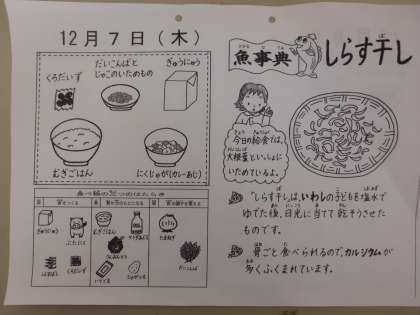 12月7日(木)
ぎゅうにゅう
だいこんばと
じゃこのいためもの
くろだいず
むぎごはん
にくじゃが(カレーあじ)
ぎゅうにゅう
ぶたにく
くろだいず
むぎごはん
じゃがいも
たまねぎ
だいこんば
魚事典
しらす干し
今日の給食では、
大根葉といっしょに
いためているよ。
"しらす干し"は、いわしの子どもを塩水で
ゆでた後、日光に当てて乾そうさせた
ものです。
骨ごと食べられるので、カルシウムが
多くふくまれています。